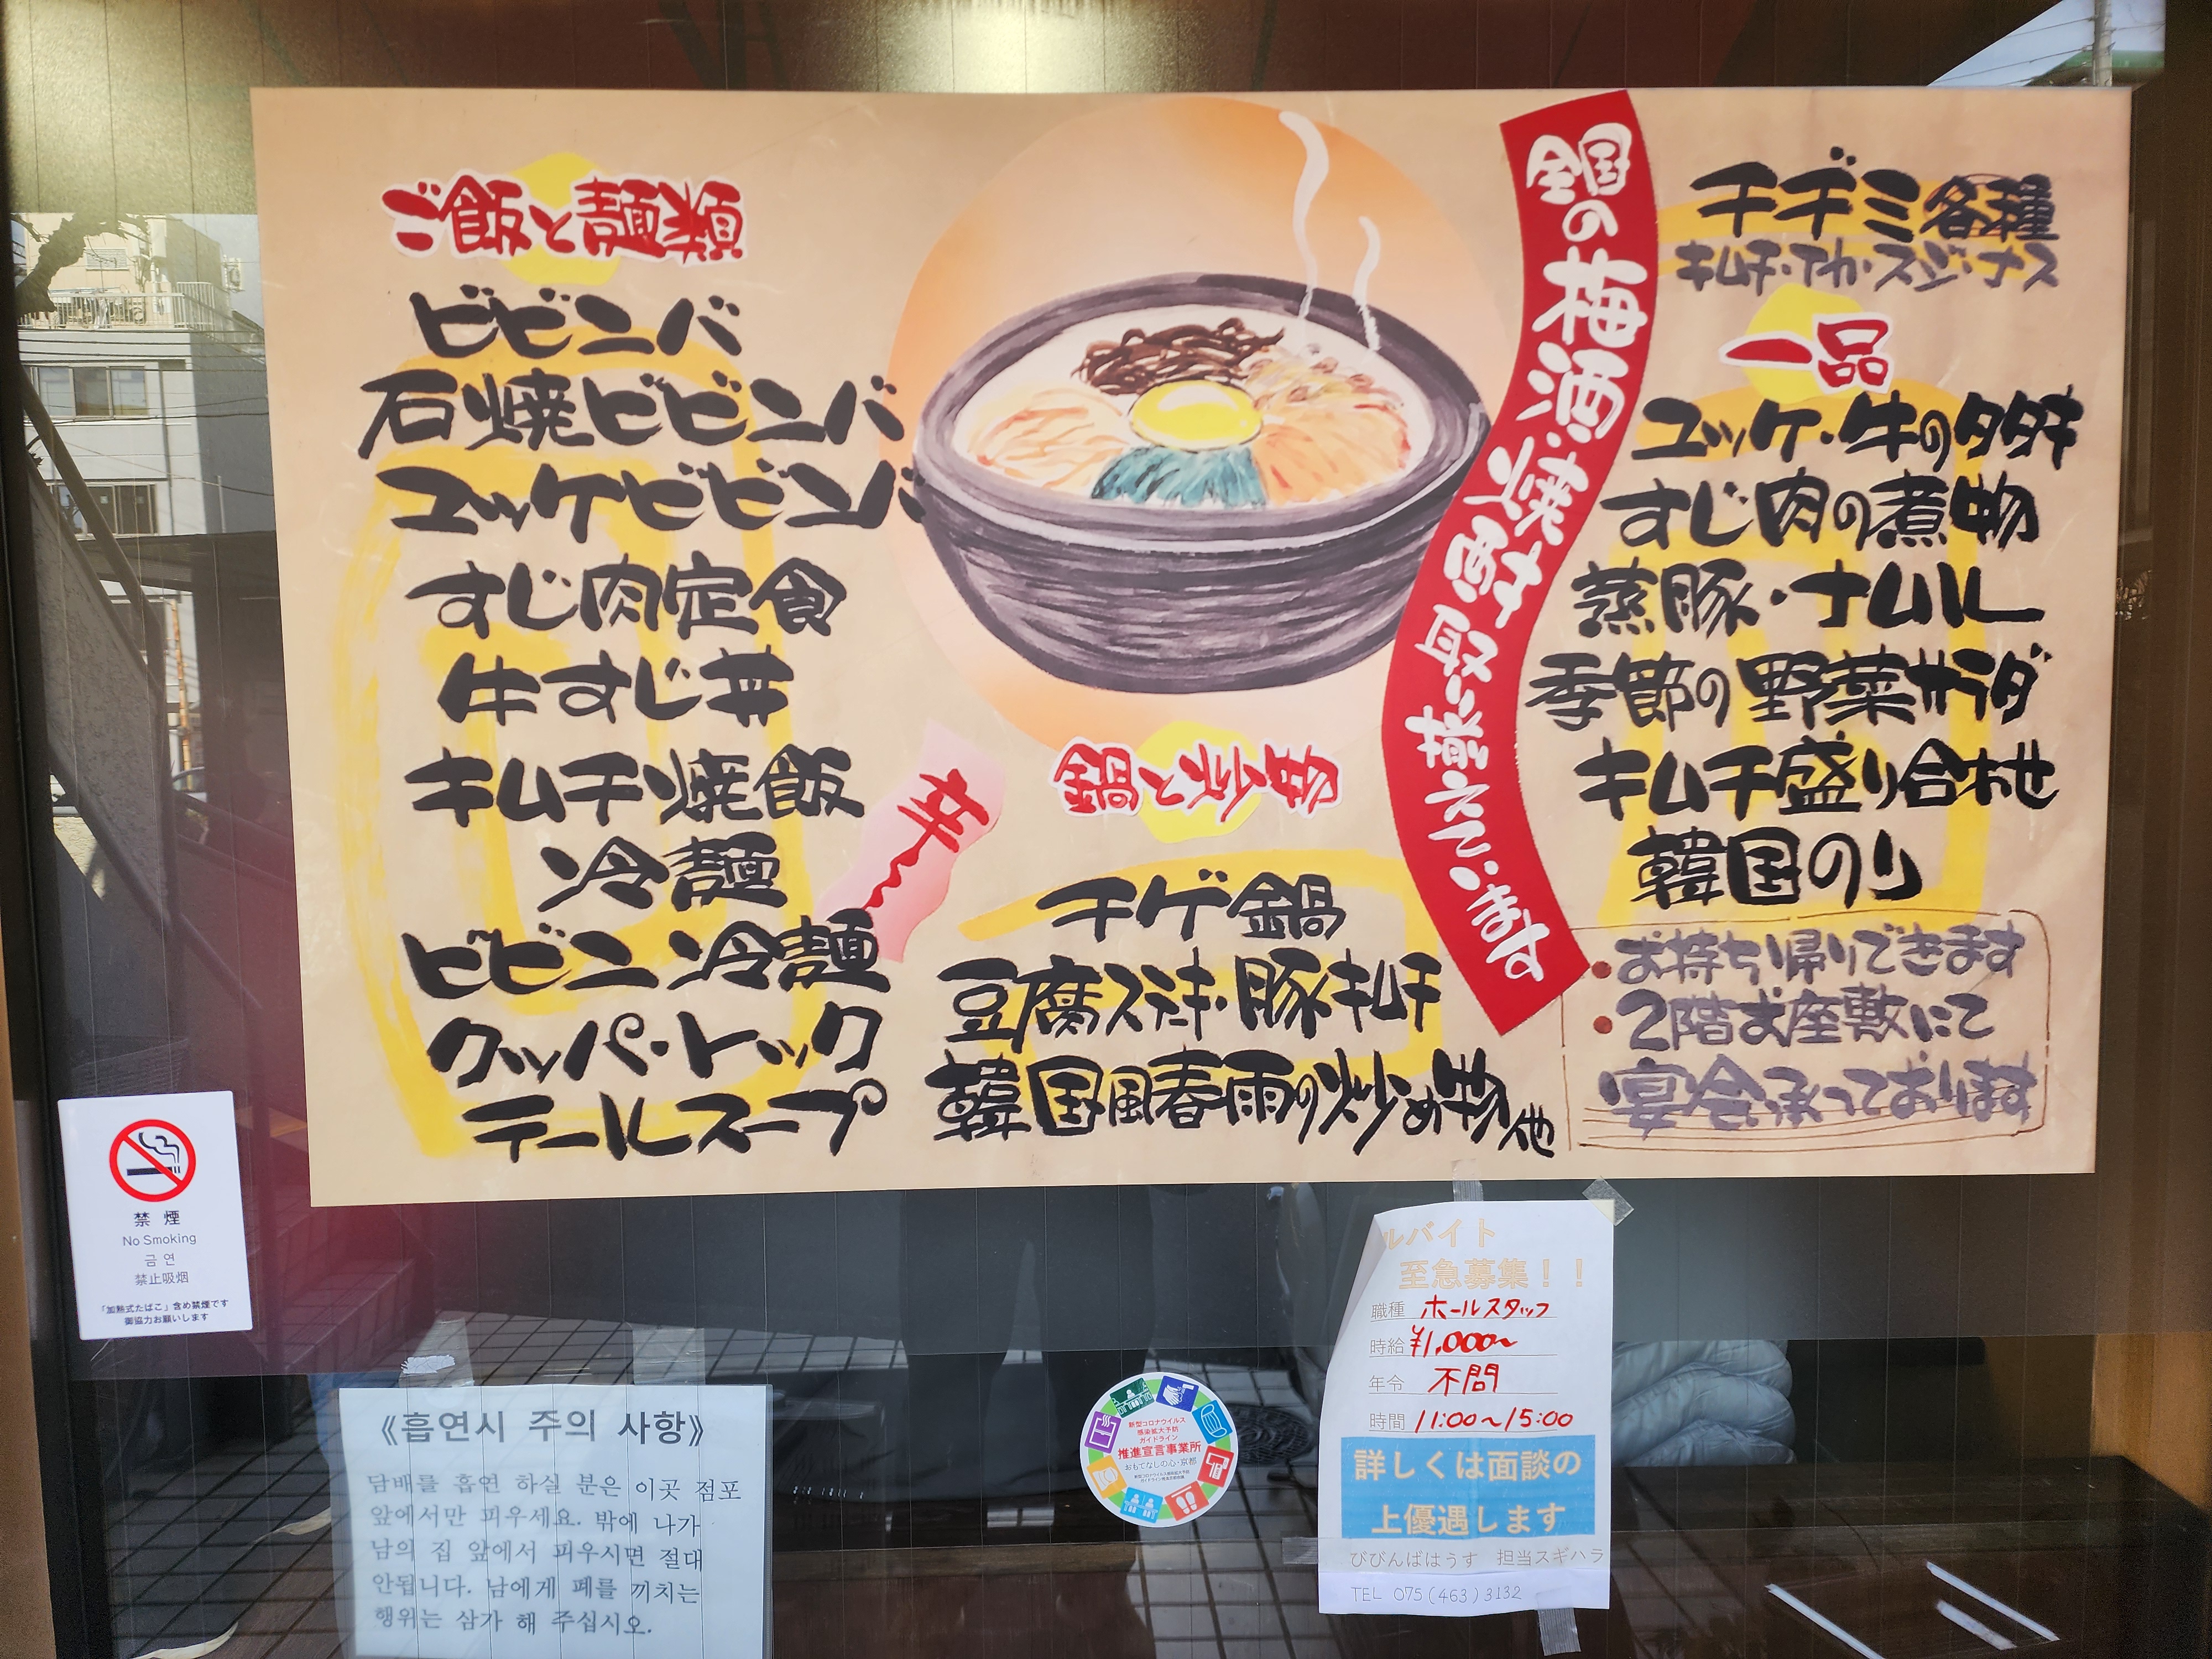 ご飯と麺類
ビビンバ
石焼ビビンバ
ユッケビビンバ
すじ肉定食
牛すじ丼
キムチ焼飯
冷麺
ビビン冷麺
クッパ・トック
テールスープ
辛〜
鍋と
チゲ鍋
豆腐ステーキ・豚キムチ
韓国風春雨の炒め物他
全国の梅酒・焼酎取り揃えています
チヂミ各種
キムチ・イカ・スジ・ナス
一品
ユッケ・牛のタタキ
すじ肉の煮物
蒸豚・ナムル
季節の野菜サラダ
キムチ盛り合わせ
韓国のり
・お持ち帰りできます
・2階お座敷にて
宴会承っております
禁煙
No Smoking
금연
禁止吸烟
「加熱式たばこ」含め禁煙です
御協力お願いします
《흡연시 주의 사항》
담배를 흡연 하실 분은 이곳 점포
앞에서만 피우세요. 밖에 나가
남의 집 앞에서 피우시면 절대
안됩니다. 남에게 폐를 끼치는
행위는 삼가 해 주십시오.
新型コロナウイルス
感染拡大予防
ガイドライン
推進宣言事業所
おもてなしの心・京都
ルバイト
至急募集！！
職種 ホールスタッフ
時給 ¥1,000〜
年令 不問
時間 11:00〜15:00
詳しくは面談の
上優遇します
びびんばはうす 担当スギハラ
TEL 075(463)3132